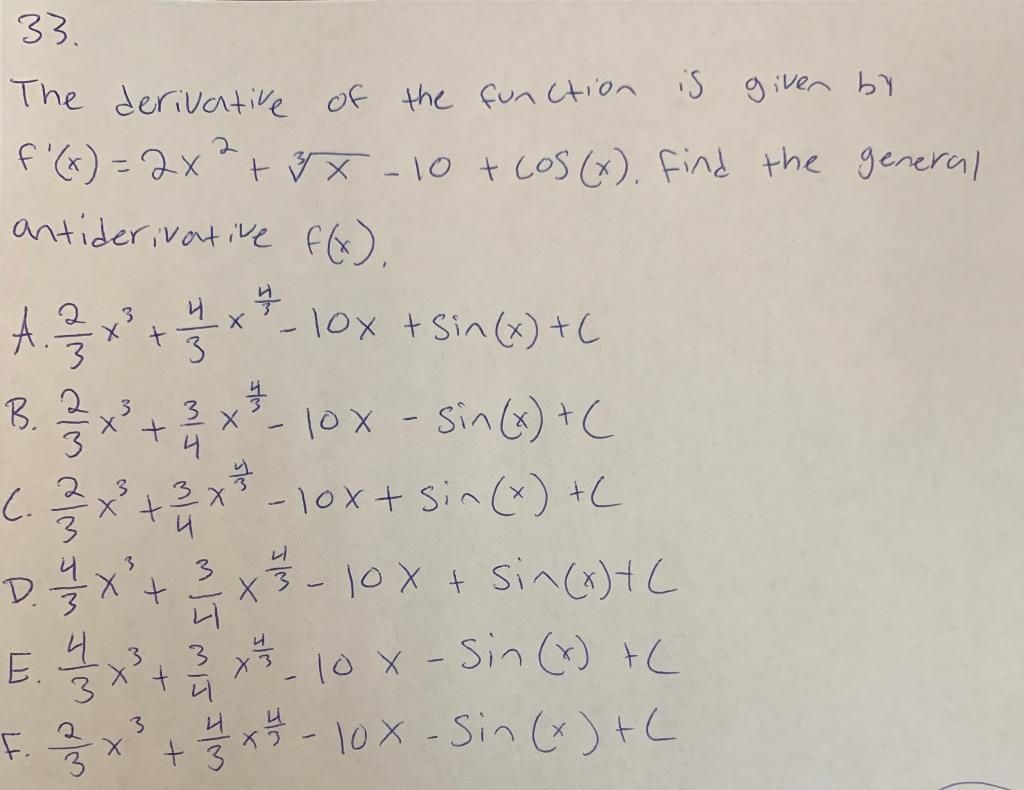 33.
The derivative of the function is given by
f'(x) = 2x² + ∛x - 10 + cos(x). Find the general
antiderivative f(x).
A. 2/3 x³ + 4/3 x^(4/3) - 10x + sin(x) + C
B. 2/3 x³ + 3/4 x^(4/3) - 10x - sin(x) + C
C. 2/3 x³ + 3/4 x^(4/3) - 10x + sin(x) + C
D. 4/3 x³ + 3/4 x^(4/3) - 10x + sin(x) + C
E. 4/3 x³ + 3/4 x^(4/3) - 10x - sin(x) + C
F. 2/3 x³ + 4/3 x^(4/3) - 10x - sin(x) + C